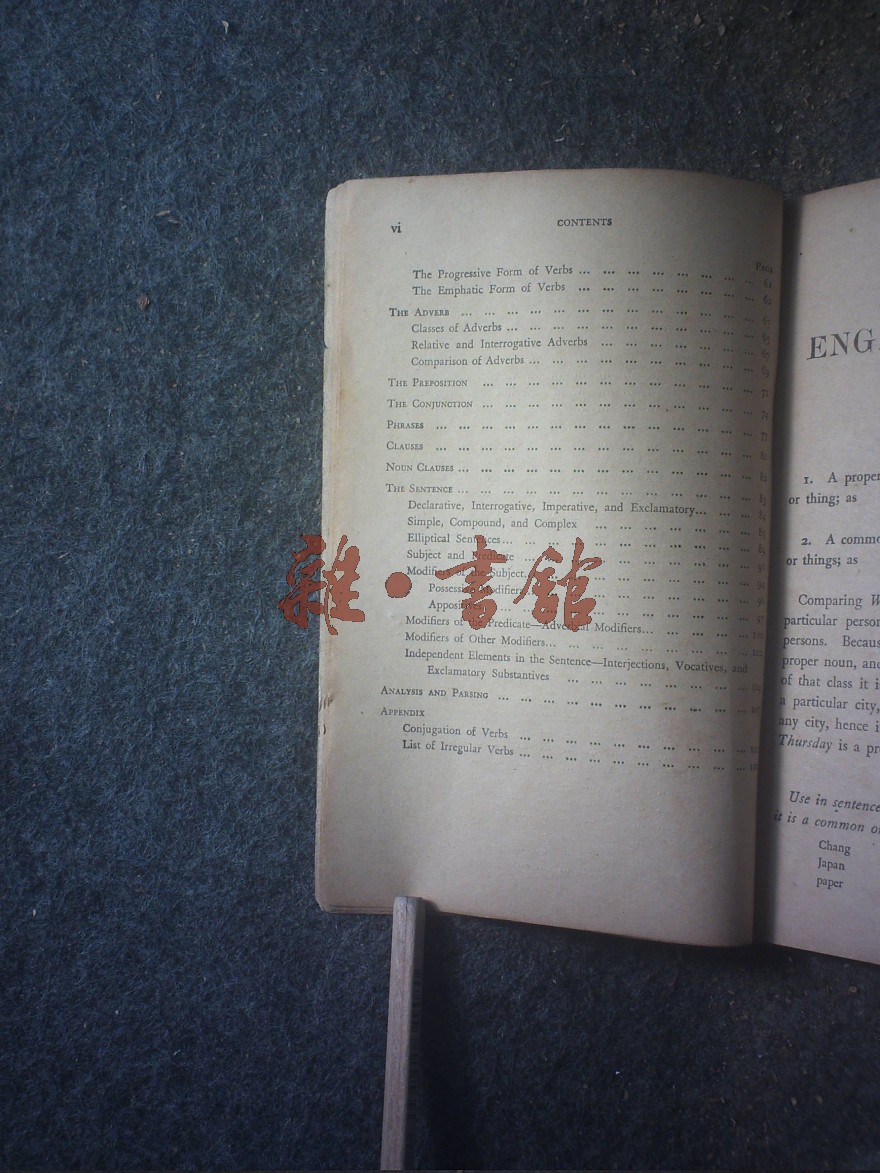 vi CONTENTS
PAGE
The Progressive Form of Verbs ... ... ... ... ... ... ... ... 61
The Emphatic Form of Verbs ... ... ... ... ... ... ... ... 62
THE ADVERB ... ... ... ... ... ... ... ... ... ... ... ...
Classes of Adverbs ... ... ... ... ... ... ... ... ... ...
Relative and Interrogative Adverbs ... ... ... ... ... ... ...
Comparison of Adverbs ... ... ... ... ... ... ... ... ... 69
THE PREPOSITION ... ... ... ... ... ... ... ... ... ... ... 71
THE CONJUNCTION ... ... ... ... ... ... ... ... ... ... ...
PHRASES ... ... ... ... ... ... ... ... ... ... ... ... ... 77
CLAUSES ... ... ... ... ... ... ... ... ... ... ... ... ...
NOUN CLAUSES ... ... ... ... ... ... ... ... ... ... ... ... 82
THE SENTENCE ... ... ... ... ... ... ... ... ... ... ... ... 83
Declarative, Interrogative, Imperative, and Exclamatory... ... ... 84
Simple, Compound, and Complex ... ... ... ... ... ... ... 85
Elliptical Sentences... ... ... ... ... ... ... ... ... ...
Subject and Predicate ... ... ... ... ... ... ... ... ...
Modifiers of the Subject... ... ... ... ... ... ... ... ... 94
Possessive Modifiers ... ... ... ... ... ... ... ... ... 96
Appositives ... ... ... ... ... ... ... ... ... ... ... 97
Modifiers of the Predicate—Adverbial Modifiers... ... ... ... ...
Modifiers of Other Modifiers... ... ... ... ... ... ... ... ...
Independent Elements in the Sentence—Interjections, Vocatives, and
Exclamatory Substantives ... ... ... ... ... ... ... ...
ANALYSIS AND PARSING ... ... ... ... ... ... ... ... ... ... ...
APPENDIX
Conjugation of Verbs ... ... ... ... ... ... ... ... ... ...
List of Irregular Verbs ... ... ... ... ... ... ... ... ... ...
雜·書館
ENG
1. A proper
or thing; as
2. A commo
or things; as
Comparing W
particular person
persons. Becaus
proper noun, and
of that class it i
a particular city,
any city, hence i
Thursday is a pr
Use in sentence
it is a common o
Chang
Japan
paper